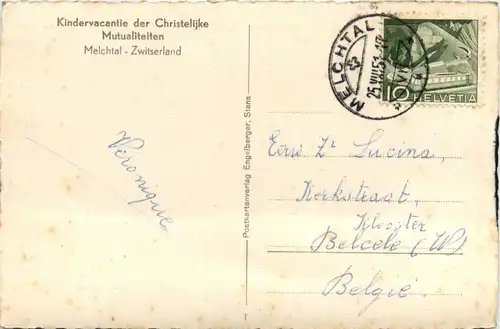 Kindervacantie der Christelijke
Mutualiteiten
Melchtal - Zwitserland
Veronique
Postkartenverlag Engelberger, Stans
MELCHTAL
25.VIII.53
10 HELVETIA
Eerw Zr Lucina,
Kerkstraat,
Klooster
Belcele (W)
België.